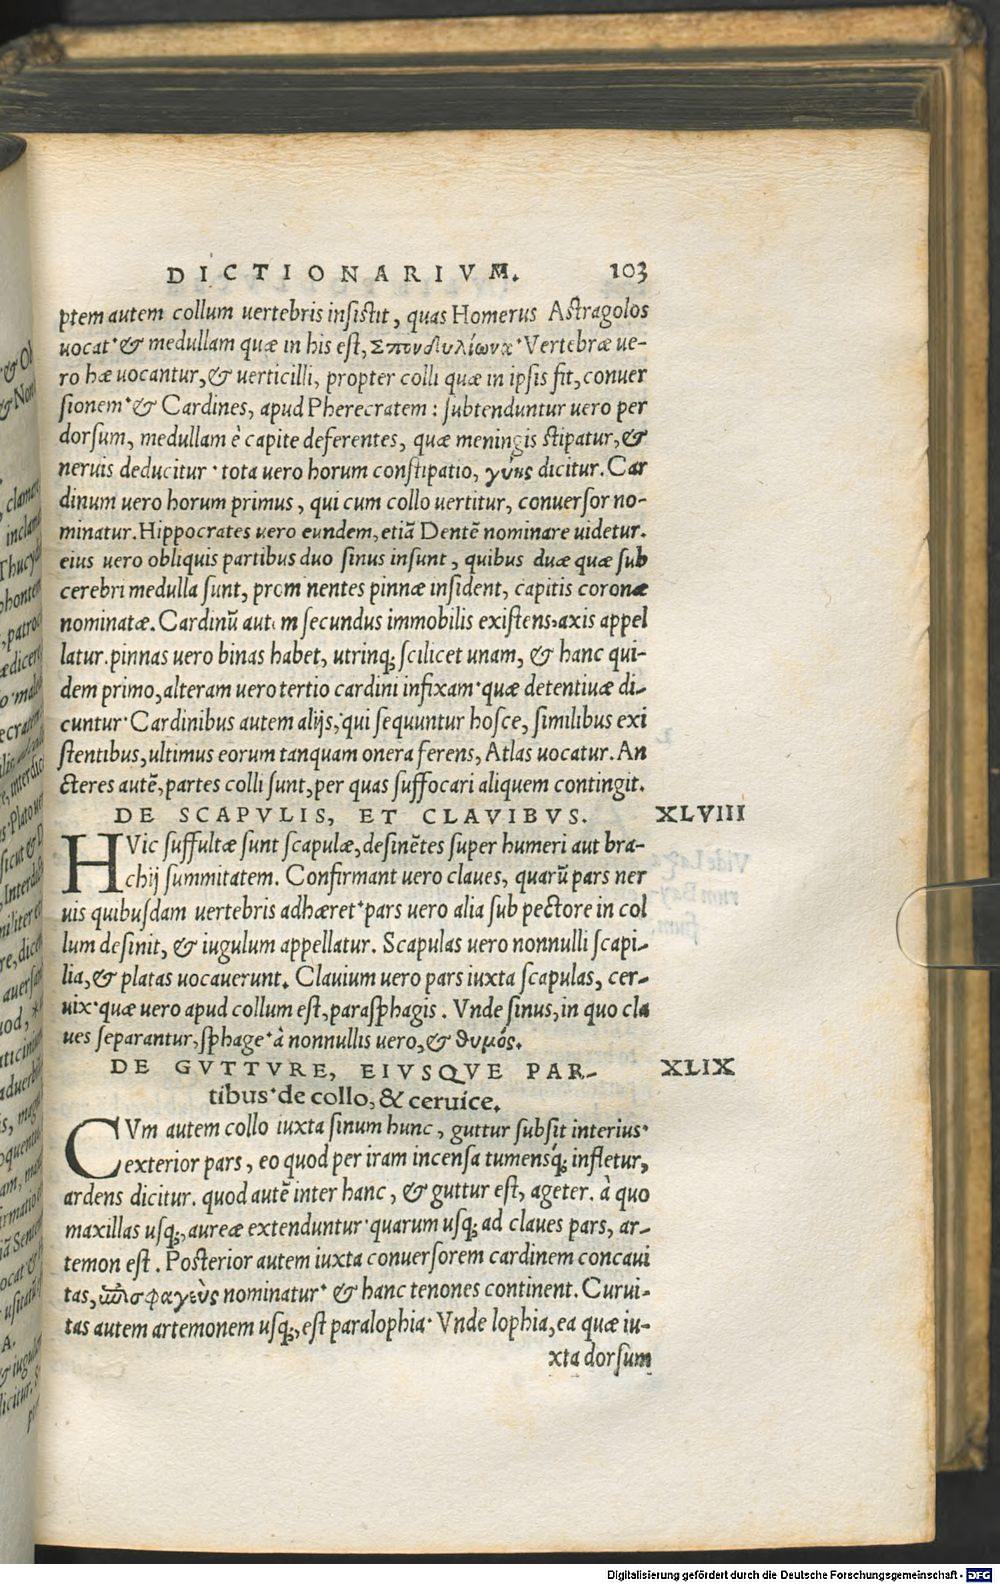 DICTIONARIVM. 103
ptem autem collum uertebris insistit, quas Homerus Astragolos
uocat· & medullam quæ in his est, Σπονδυλίωνα· Vertebræ ue-
ro hæ uocantur, & uerticilli, propter colli quæ in ipsis fit, conuer
sionem· & Cardines, apud Pherecratem: subtenduntur uero per
dorsum, medullam è capite deferentes, quæ meningis stipatur, &
neruis deducitur· tota uero horum constipatio, γύης dicitur. Car
dinum uero horum primus, qui cum collo uertitur, conuersor no-
minatur. Hippocrates uero eundem, etiã Dentẽ nominare uidetur.
eius uero obliquis partibus duo sinus insunt, quibus duæ quæ sub
cerebri medulla sunt, prominentes pinnæ insident, capitis coronæ
nominatæ. Cardinũ autem secundus immobilis existens, axis appel
latur. pinnas uero binas habet, utrinq; scilicet unam, & hanc qui-
dem primo, alteram uero tertio cardini infixam· quæ detentiuæ di-
cuntur· Cardinibus autem alijs, qui sequuntur hosce, similibus exi
stentibus, ultimus eorum tanquam onera ferens, Atlas uocatur. An
cteres autẽ, partes colli sunt, per quas suffocari aliquem contingit.
DE SCAPVLIS, ET CLAVIBVS. XLVIII
HVic suffultæ sunt scapulæ, desinẽtes super humeri aut bra-
chij summitatem. Confirmant uero claues, quarũ pars ner
uis quibusdam uertebris adhæret· pars uero alia sub pectore in col
lum desinit, & iugulum appellatur. Scapulas uero nonnulli scapi-
lia, & platas uocauerunt. Clauium uero pars iuxta scapulas, cer-
uix· quæ uero apud collum est, parasphagis. Vnde sinus, in quo cla
ues separantur, sphage· à nonnullis uero, & θυμός.
DE GVTTVRE, EIVSQVE PAR- XLIX
tibus· de collo, & ceruice.
CVm autem collo iuxta sinum hunc, guttur subsit interius·
exterior pars, eo quod per iram incensa tumensq; infletur,
ardens dicitur. quod autẽ inter hanc, & guttur est, ageter. à quo
maxillas usq;, aureæ extenduntur· quarum usq; ad claues pars, ar-
temon est. Posterior autem iuxta conuersorem cardinem concaui
tas, nominatur· & hanc tenones continent. Curui-
tas autem artemonem usq;, est paralophia· Vnde lophia, ea quæ iu-
xta dorsum
Digitalisierung gefördert durch die Deutsche Forschungsgemeinschaft - DFG